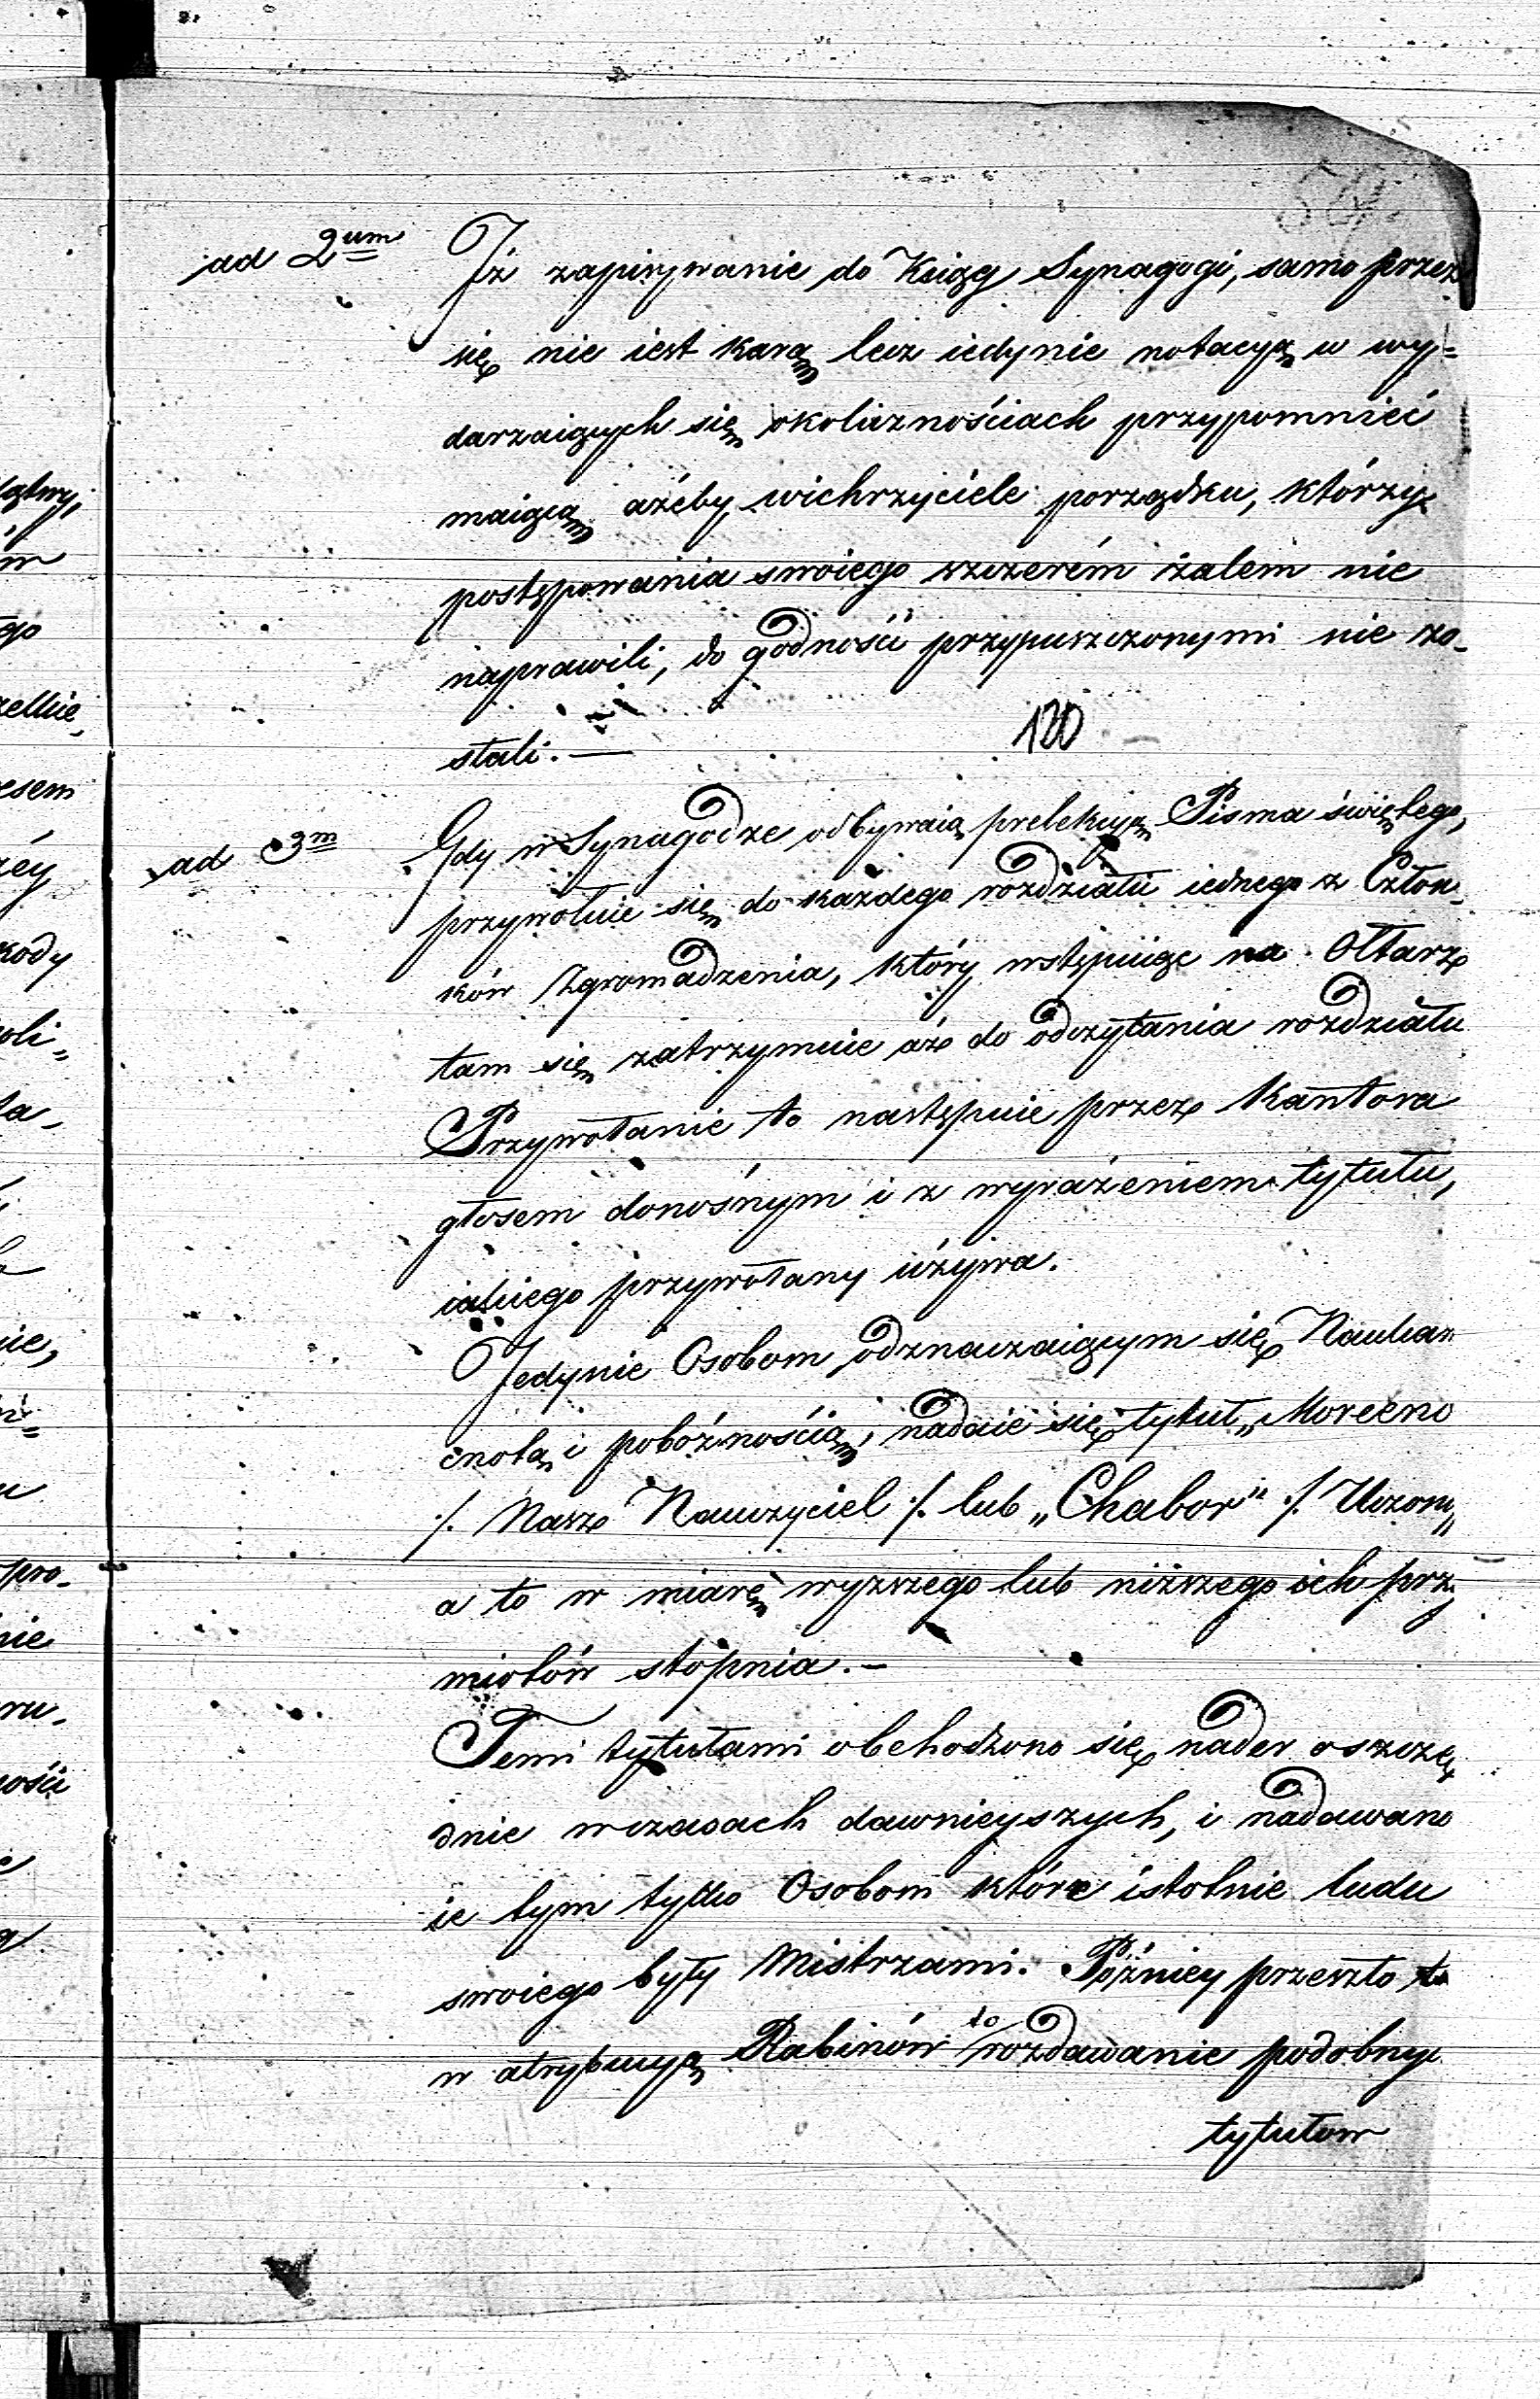 ad 2um Iż zapisywanie do Księgi Synagogi, samo przez
się nie iest karą lecz iedynie notacyą w wy=
darzaiących się okolicznościach przypomnieć
maiącą ażeby wichrzyciele porządku, którzy
postępowania swoiego szczerém żalem nie
naprawili, do godności przypuszczonymi nie zo-
stali. —
120
ad 3m Gdy w Synagodze odbywaią prelekcyą Pisma świętego,
przywołuie się do każdego rozdziału iednego z Człon-
ków Zgromadzenia, który wstępuiąc na Ołtarz
tam się zatrzymuie aż do odczytania rozdziału
Przywołanie to następuie przez Kantora
głosem donośnym i z wyrażeniem tytułu,
iakiego przywołany używa.
Jedynie Osobom odznaczaiącym się Nauką
cnotą i pobożnością, nadaie się tytuł „Moreeno
/. Nasz Nauczyciel /. lub „Chabor" /. Uczony
a to w miarę wyższego lub niższego ich przy
miotów stopnia. –
Temi tytułami obchodzono się nader oszczę
dnie w czasach dawnieyszych, i nadawano
ie tym tylko Osobom które istotnie ludu
swoiego były Mistrzami. Późniey przeszło
w atrybucyą Rabinów to rozdawanie podobnyc
tytułow